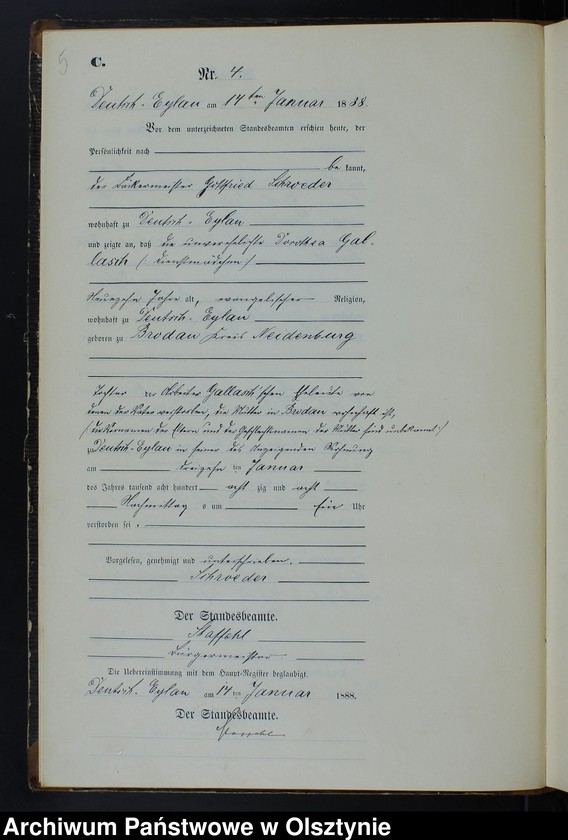 5
C.
Nr. 4.
Deutsch-Eylau am 14ten Januar 1888.
Vor dem unterzeichneten Standesbeamten erschien heute, der
Persönlichkeit nach
be kannt,
der Bäckermeister Gottfried Schroeder
wohnhaft zu Deutsch-Eylau
und zeigte an, daß die unverehelichte Dorothea Gal-
lasch (: Dienstmädchen :)
Neunzehn Jahre alt, evangelischer Religion,
wohnhaft zu Deutsch-Eylau
geboren zu Brodau Kreis Neidenburg
Tochter der Arbeiter Gallasch'schen Eheleute von
denen der Vater verstorben, die Mutter in Brodau wohnhaft ist,
(: die Vornamen der Eltern und der Geschlechtsname der Mutter sind unbekannt :)
zu Deutsch-Eylau in seiner des Anzeigenden Wohnung
am dreizehn ten Januar
des Jahres tausend acht hundert acht zig und acht
Nachmittags um Ein Uhr
verstorben sei.
Vorgelesen, genehmigt und unterschrieben.
Schroeder
Der Standesbeamte.
Staffehl
Bürgermeister
Die Uebereinstimmung mit dem Haupt-Register beglaubigt.
Deutsch-Eylau am 14 ten Januar 1888.
Der Standesbeamte.
Archiwum Państwowe w Olsztynie